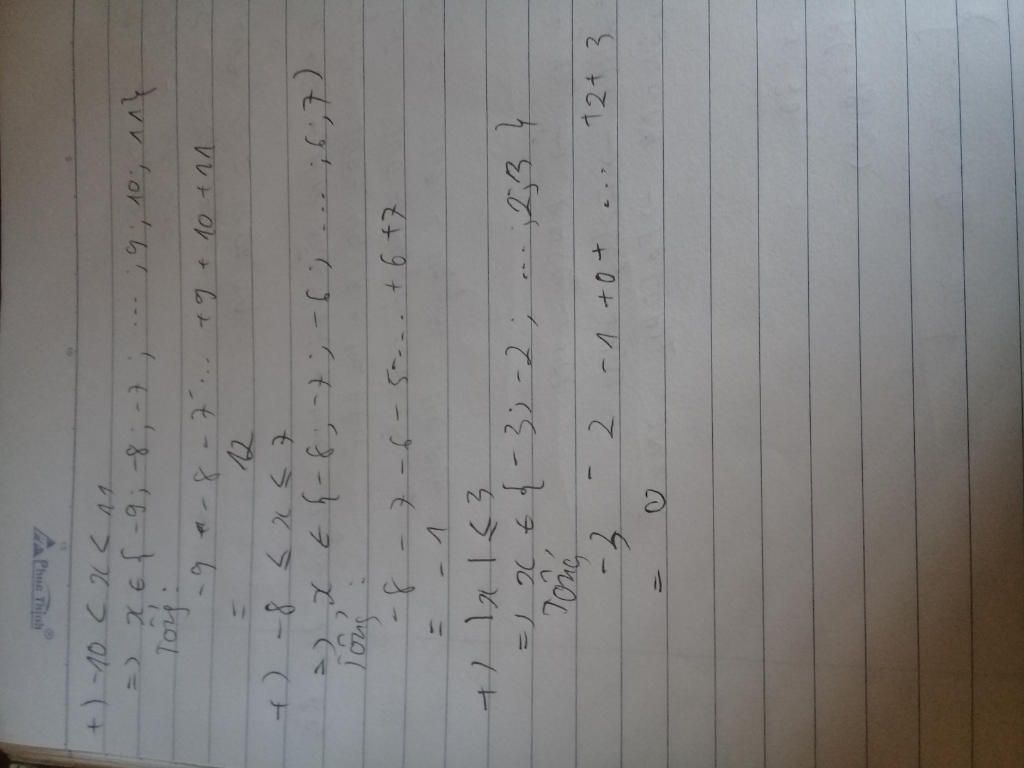 Phúc Thịnh®
+) -10 < x ≤ 11
=) x ∈ { -9; -8; -7; ....; 9; 10; 11 }
Tổng:
-9 - 8 - 7 - ... + 9 + 10 + 11
= 12
+) -8 ≤ x ≤ 7
=) x ∈ { -8; -7; -6; ....; 6; 7 )
Tổng:
-8 - 7 - 6 - 5 -... + 6 + 7
= -1
+) |x| ≤ 3
=) x ∈ { -3; -2; ....; 2; 3 }
Tổng:
-3 - 2 - 1 + 0 + ... + 2 + 3
= 0